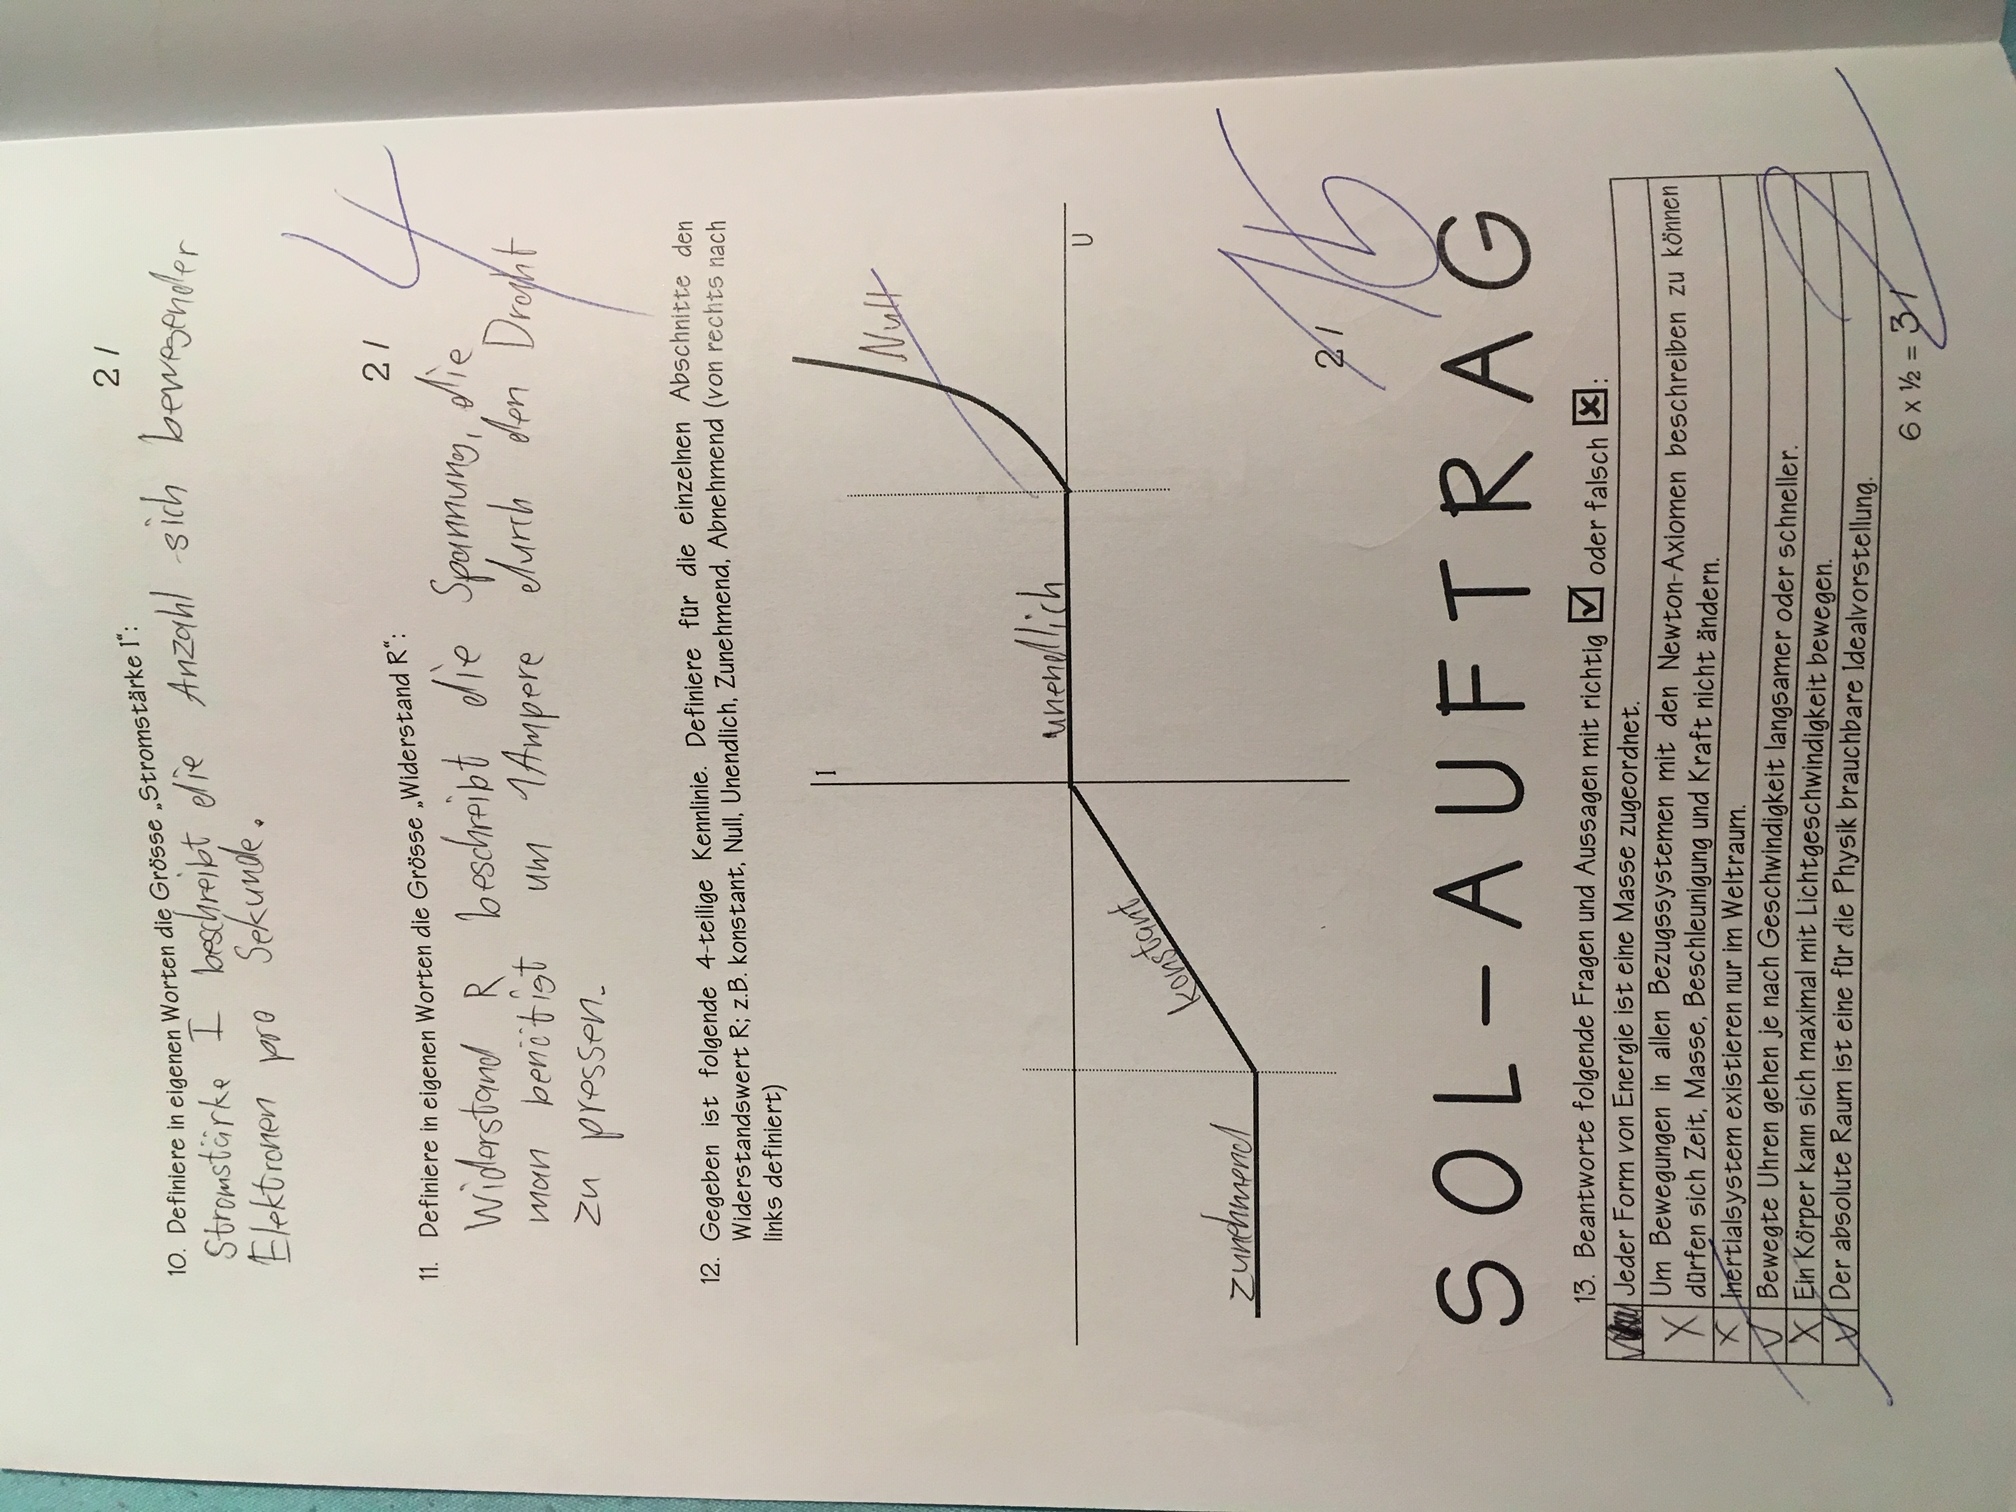 2 /
10. Definiere in eigenen Worten die Grösse „Stromstärke I“:
Stromstärke I beschreibt die Anzahl sich bewegender
Elektronen pro Sekunde.
2 /
4
11. Definiere in eigenen Worten die Grösse „Widerstand R“:
Widerstand R beschreibt die Spannung, die
man benötigt um 1 Ampere durch den Draht
zu pressen.
12. Gegeben ist folgende 4-teilige Kennlinie. Definiere für die einzelnen Abschnitte den
Widerstandswert R; z.B. konstant, Null, Unendlich, Zunehmend, Abnehmend (von rechts nach
links definiert)
I
Null
unendlich
U
konstant
zunehmend
2 /
15
SOL-AUFTRAG
13. Beantworte folgende Fragen und Aussagen mit richtig ☑ oder falsch ☒:
Jeder Form von Energie ist eine Masse zugeordnet.
X Um Bewegungen in allen Bezugssystemen mit den Newton-Axiomen beschreiben zu können
dürfen sich Zeit, Masse, Beschleunigung und Kraft nicht ändern.
X Inertialsystem existieren nur im Weltraum.
✓ Bewegte Uhren gehen je nach Geschwindigkeit langsamer oder schneller.
X Ein Körper kann sich maximal mit Lichtgeschwindigkeit bewegen.
✓ Der absolute Raum ist eine für die Physik brauchbare Idealvorstellung.
2
6 x ½ = 3 /